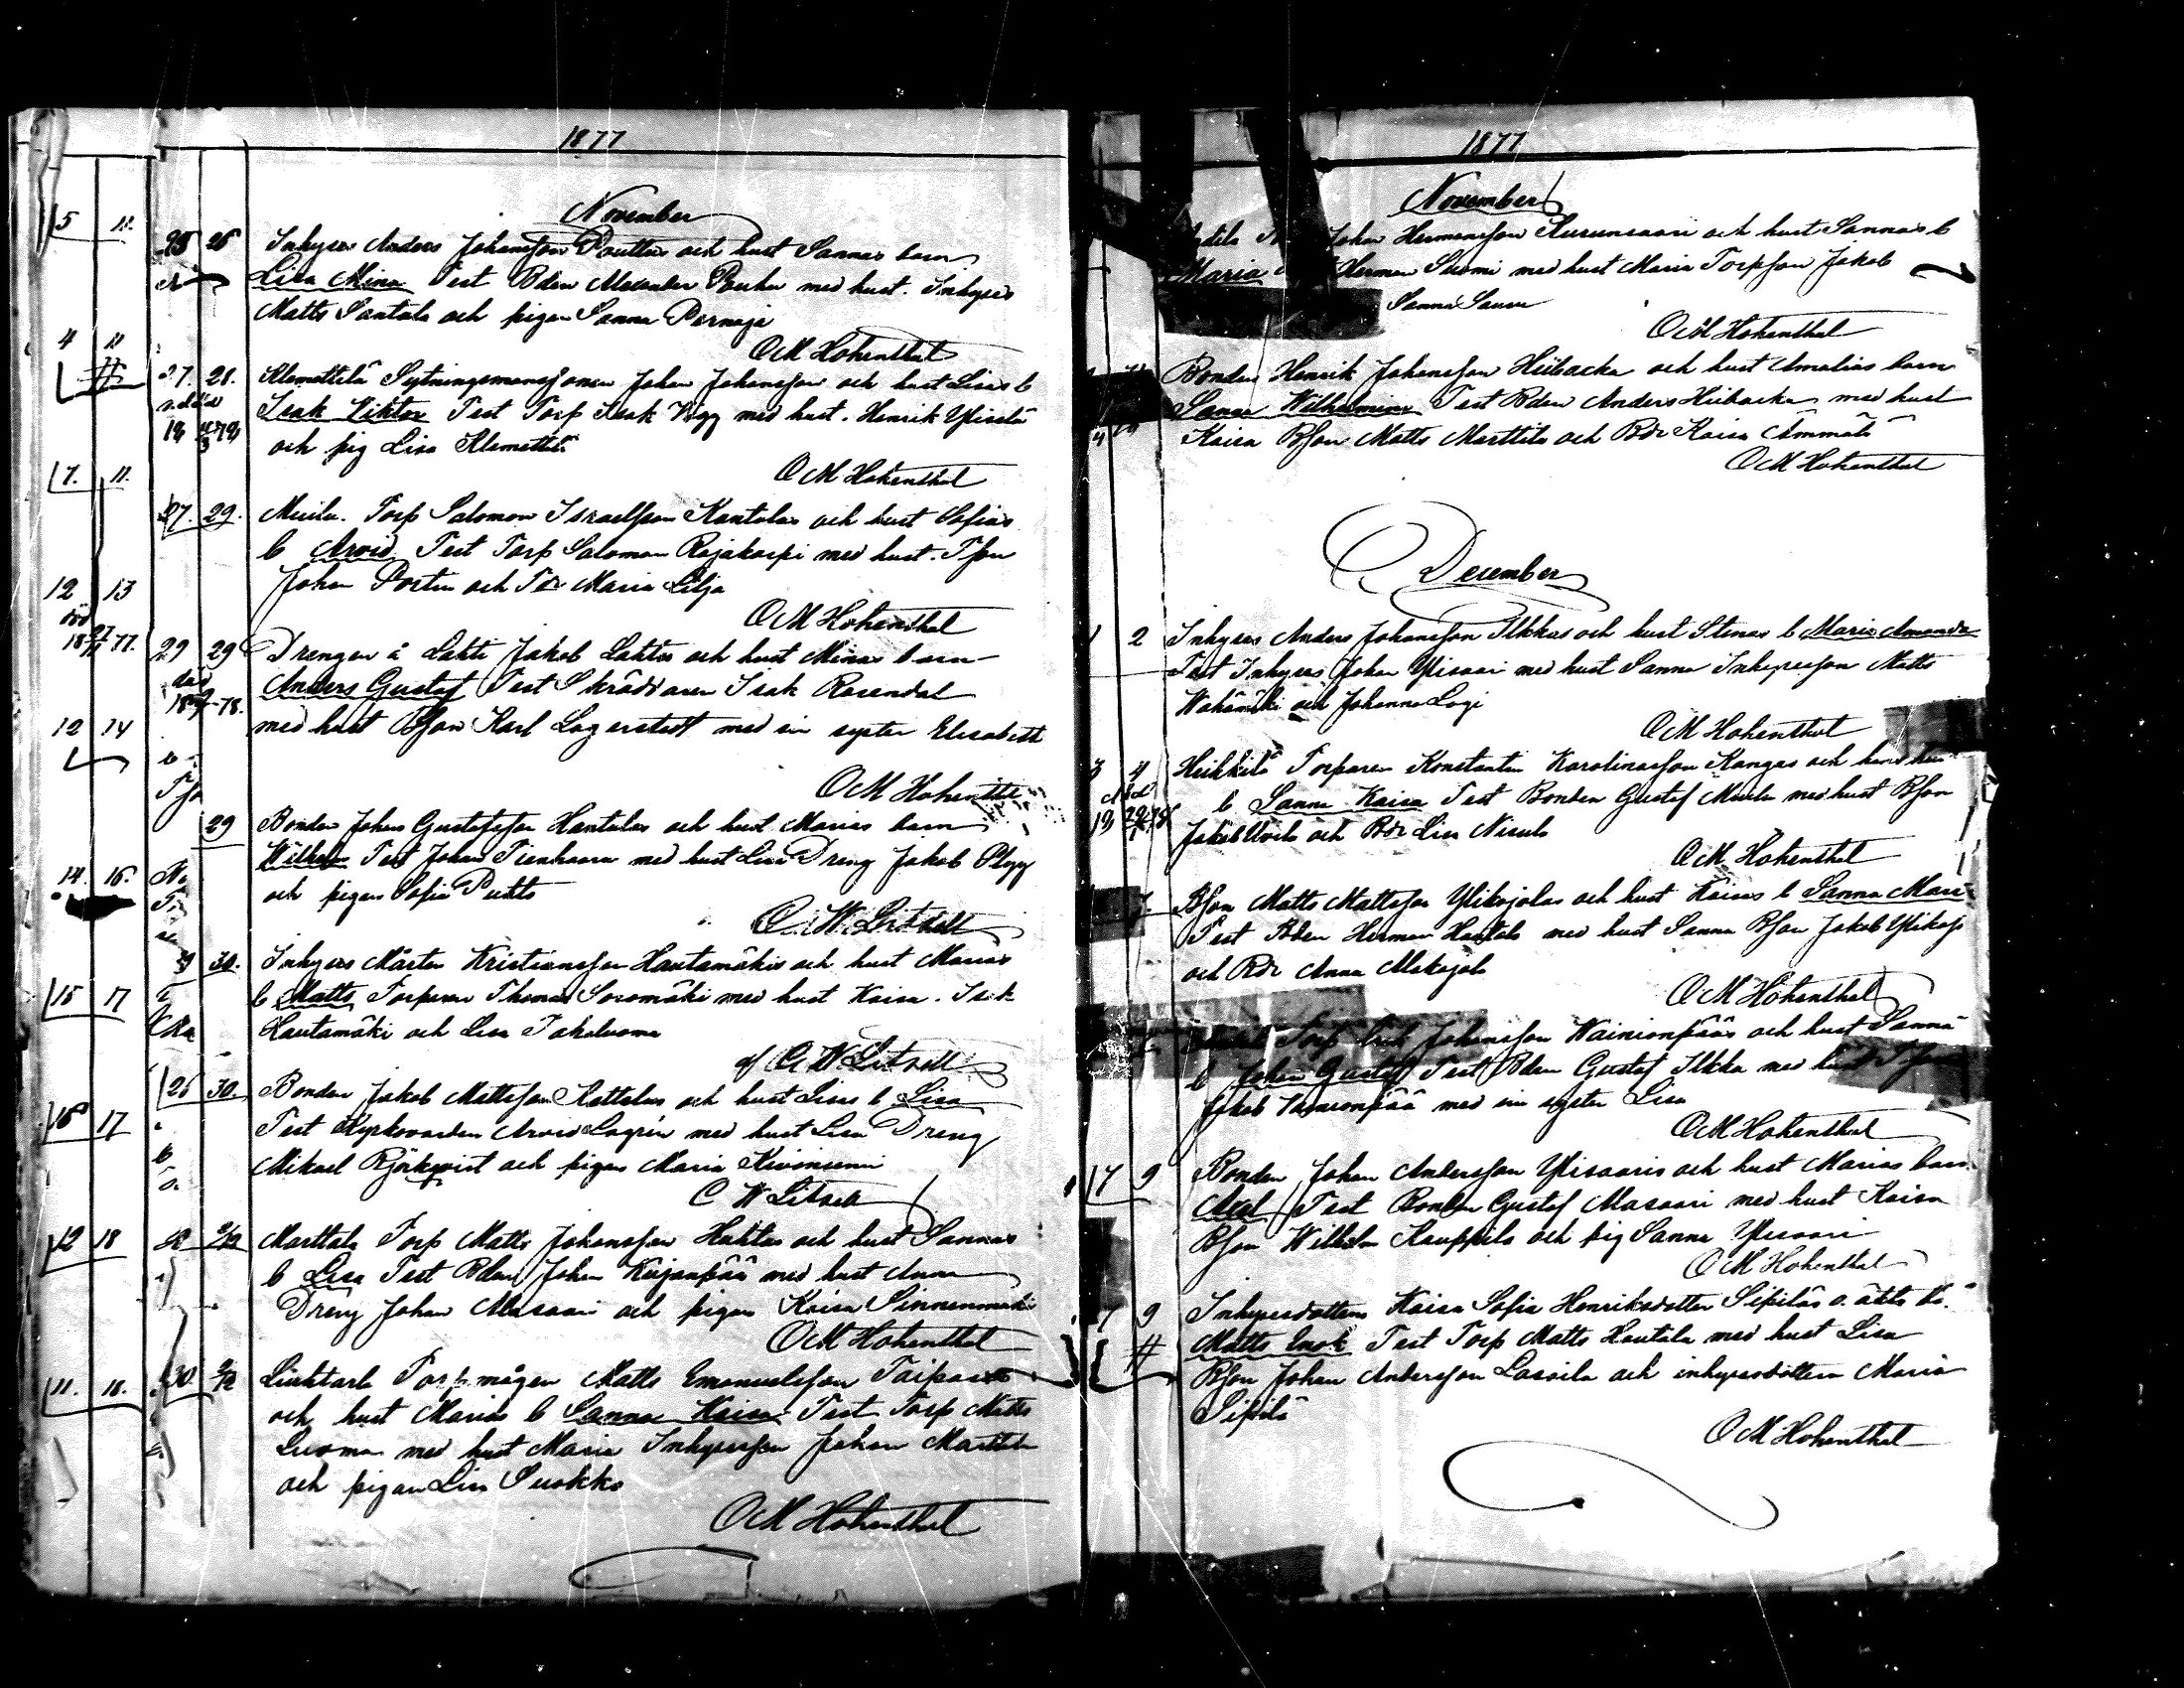 1877
November
5 11.
25 26 Inhyses Anders Johansson Pouttus och hust Sannas barn
Lisa Mina Test Bden Alexander Pouttu med hust. Inhyses
Matts Santala och pigan Sanna Pernaja
OM Hohenthal
4 11
27. 28. Klemettilä Sytningsmansonen Johan Johansson och hust Lisas b
Isak Viktor Test Torp Isak Wigg med hust. Henrik Yliselä
och pig Lisa Klemettilä
OM Hohenthal
7. 11.
27. 29. Torp Salomon Israelsson Kantolas och hust Sofias
b Arvid Test Torp Salomon Rajakorpi med hust. Tson
Johan Portin och Tdr Maria Lilja
OM Hohenthal
12 13
29 29 Drengen å Lahti Jakob Lahtis och hust Minas barn
Anders Gustaf Test Skräddaren Isak Rosendal
med hust Bson Karl Lagerstedt med sin syster Elisabeth
12 14
OM Hohenthal
29 Bonden Johan Gustafsson Hantulas och hust Marias barn
Wilhelm Test Johan Tienhaara med hust Lisa Dreng Jakob Plogg
och pigan Sofia Puhto
14. 16.
C. W. Litzell
30. Inhyses Mårten Kristiansson Hautamäkis och hust Marias
b Matts Torparen Thomas Soromäki med hust Kaisa. Isak
Hautamäki och Lisa Jakoluoma
15 17
af C W Litzell
26 30. Bonden Jakob Mattsson Kattelus och hust Lisas b Lisa
Test Kyrkovärden Arvid Lagrén med hust Lisa Dreng
Mikael Björkqvist och pigan Maria Kivinienni
16 17
C W Litzell
12 18 2/12 Marttala Torp Matts Johansson Huhtas och hust Sannas
b Lisa Test Bden Johan Kujanpää med hust Anna
Dreng Johan Masaari och pigan Kaisa Sinnenmäki
OM Hohenthal
11. 18. 30 2/12 Liuhtari Torpmågen Matts Emanuelsson Taipas
och hust Marias b Sanna Kaisa Test Torp Matts
Luoma med hust Maria Inhysesson Johan Marttila
och pigan Lisa Suokko
OM Hohenthal
1877
November
Johan Hermansson Kurunsaari och hust Sannas b
Maria Herman Suomi med hust Maria Torpson Jakob
Sanna Sauru
OM Hohenthal
Bonden Henrik Johansson Hiibacka och hust Amalias barn
Sanna Wilhelmina Test Bden Anders Hiibacka med hust
Kaisa Bson Matts Marttila och Bdr Kaisa Ämmälä
OM Hohenthal
December
1 2 Inhyses Anders Johansson Ilkkas och hust Stinas b Maria Amanda
Test Inhyses Johan Ylisaari med hust Sanna Inhysesson Matts
Wähämäki och Johanna Logi
OM Hohenthal
3 4 Heikkilä Torparen Konstantin Karolinasson Kangas och hans hu
b Sanna Kaisa Test Bonden Gustaf med hust Bson
Jakob och Bdr Lisa Nisula
OM Hohenthal
Bson Matts Mattsson Ylikojolas och hust Kaisas b Sanna Mari
Test Bden Herman Hantula med hust Sanna Bson Jakob Ylikojo
och Bdr Anna Alakojola
OM Hohenthal
Torp Erik Johansson Wainionpääs och hust Sanna
b Johan Gustaf Test Bden Gustaf Ilkka med hust
Jakob Wainionpää med sin syster Lisa
OM Hohenthal
7 9 Bonden Johan Andersson Ylisaaris och hust Marias barn
Axel Test Bonden Gustaf Masaari med hust Kaisa
Bson Wilhelm Kauppila och pig Sanna Ylisaari
OM Hohenthal
7 9 Inhysesdottern Kaisa Sofia Henriksdotter Sipiläs o. äkta b.
Matts Enok Test Torp Matts Hautala med hust Lisa
Bson Johan Andersson Lassila och inhysesdottern Maria
Sipilä
OM Hohenthal